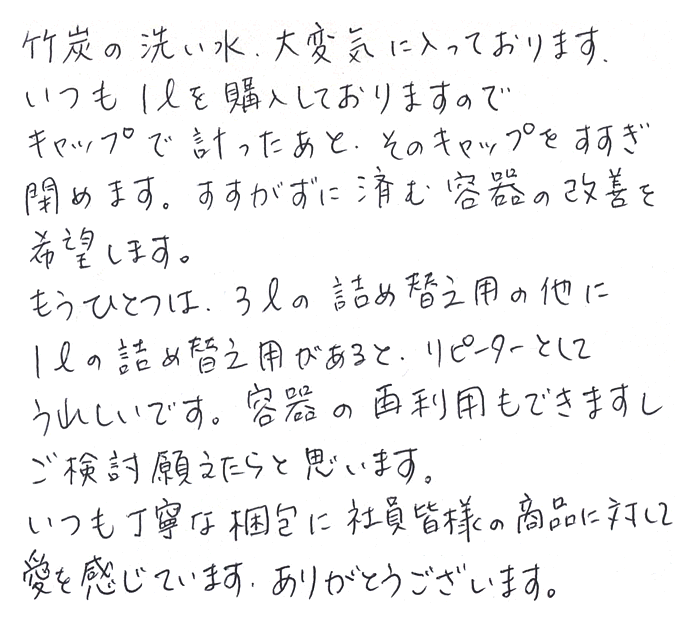 竹炭の洗い水、大変気に入っております。
いつも1ℓを購入しておりますので
キャップで計ったあと、そのキャップをすすぎ
閉めます。すすがずに済む容器の改善を
希望します。
もうひとつは、3ℓの詰め替え用の他に
1ℓの詰め替え用があると、リピーターとして
うれしいです。容器の再利用もできますし
ご検討願えたらと思います。
いつも丁寧な梱包に社員皆様の商品に対して
愛を感じています。ありがとうございます。